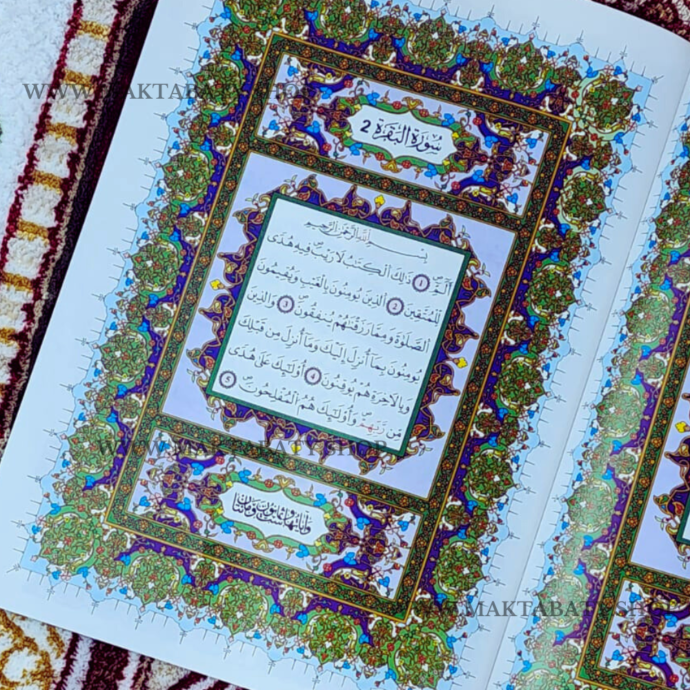 WWW.MAKTABATYSHOP.
سُورَةُ البَقَرَةِ 2
بِسْمِ اللَّهِ الرَّحْمَٰنِ الرَّحِيمِ
الٓمٓ ۝1 ذَٰلِكَ الْكِتَٰبُ لَا رَيْبَ فِيهِ هُدًى
لِّلْمُتَّقِينَ ۝2 الَّذِينَ يُومِنُونَ بِالْغَيْبِ وَيُقِيمُونَ
الصَّلَوٰةَ وَمِمَّا رَزَقْنَٰهُمْ يُنفِقُونَ ۝3 وَالَّذِينَ
يُومِنُونَ بِمَا أُنزِلَ إِلَيْكَ وَمَا أُنزِلَ مِن قَبْلِكَ
وَبِالَاخِرَةِ هُمْ يُوقِنُونَ ۝4 أُوْلَٰئِكَ عَلَىٰ هُدًى
مِّن رَّبِّهِمْ وَأُوْلَٰئِكَ هُمُ الْمُفْلِحُونَ ۝5
WWW.MAKTABATYSHOP.
WWW.MAKTABATYSHOP.